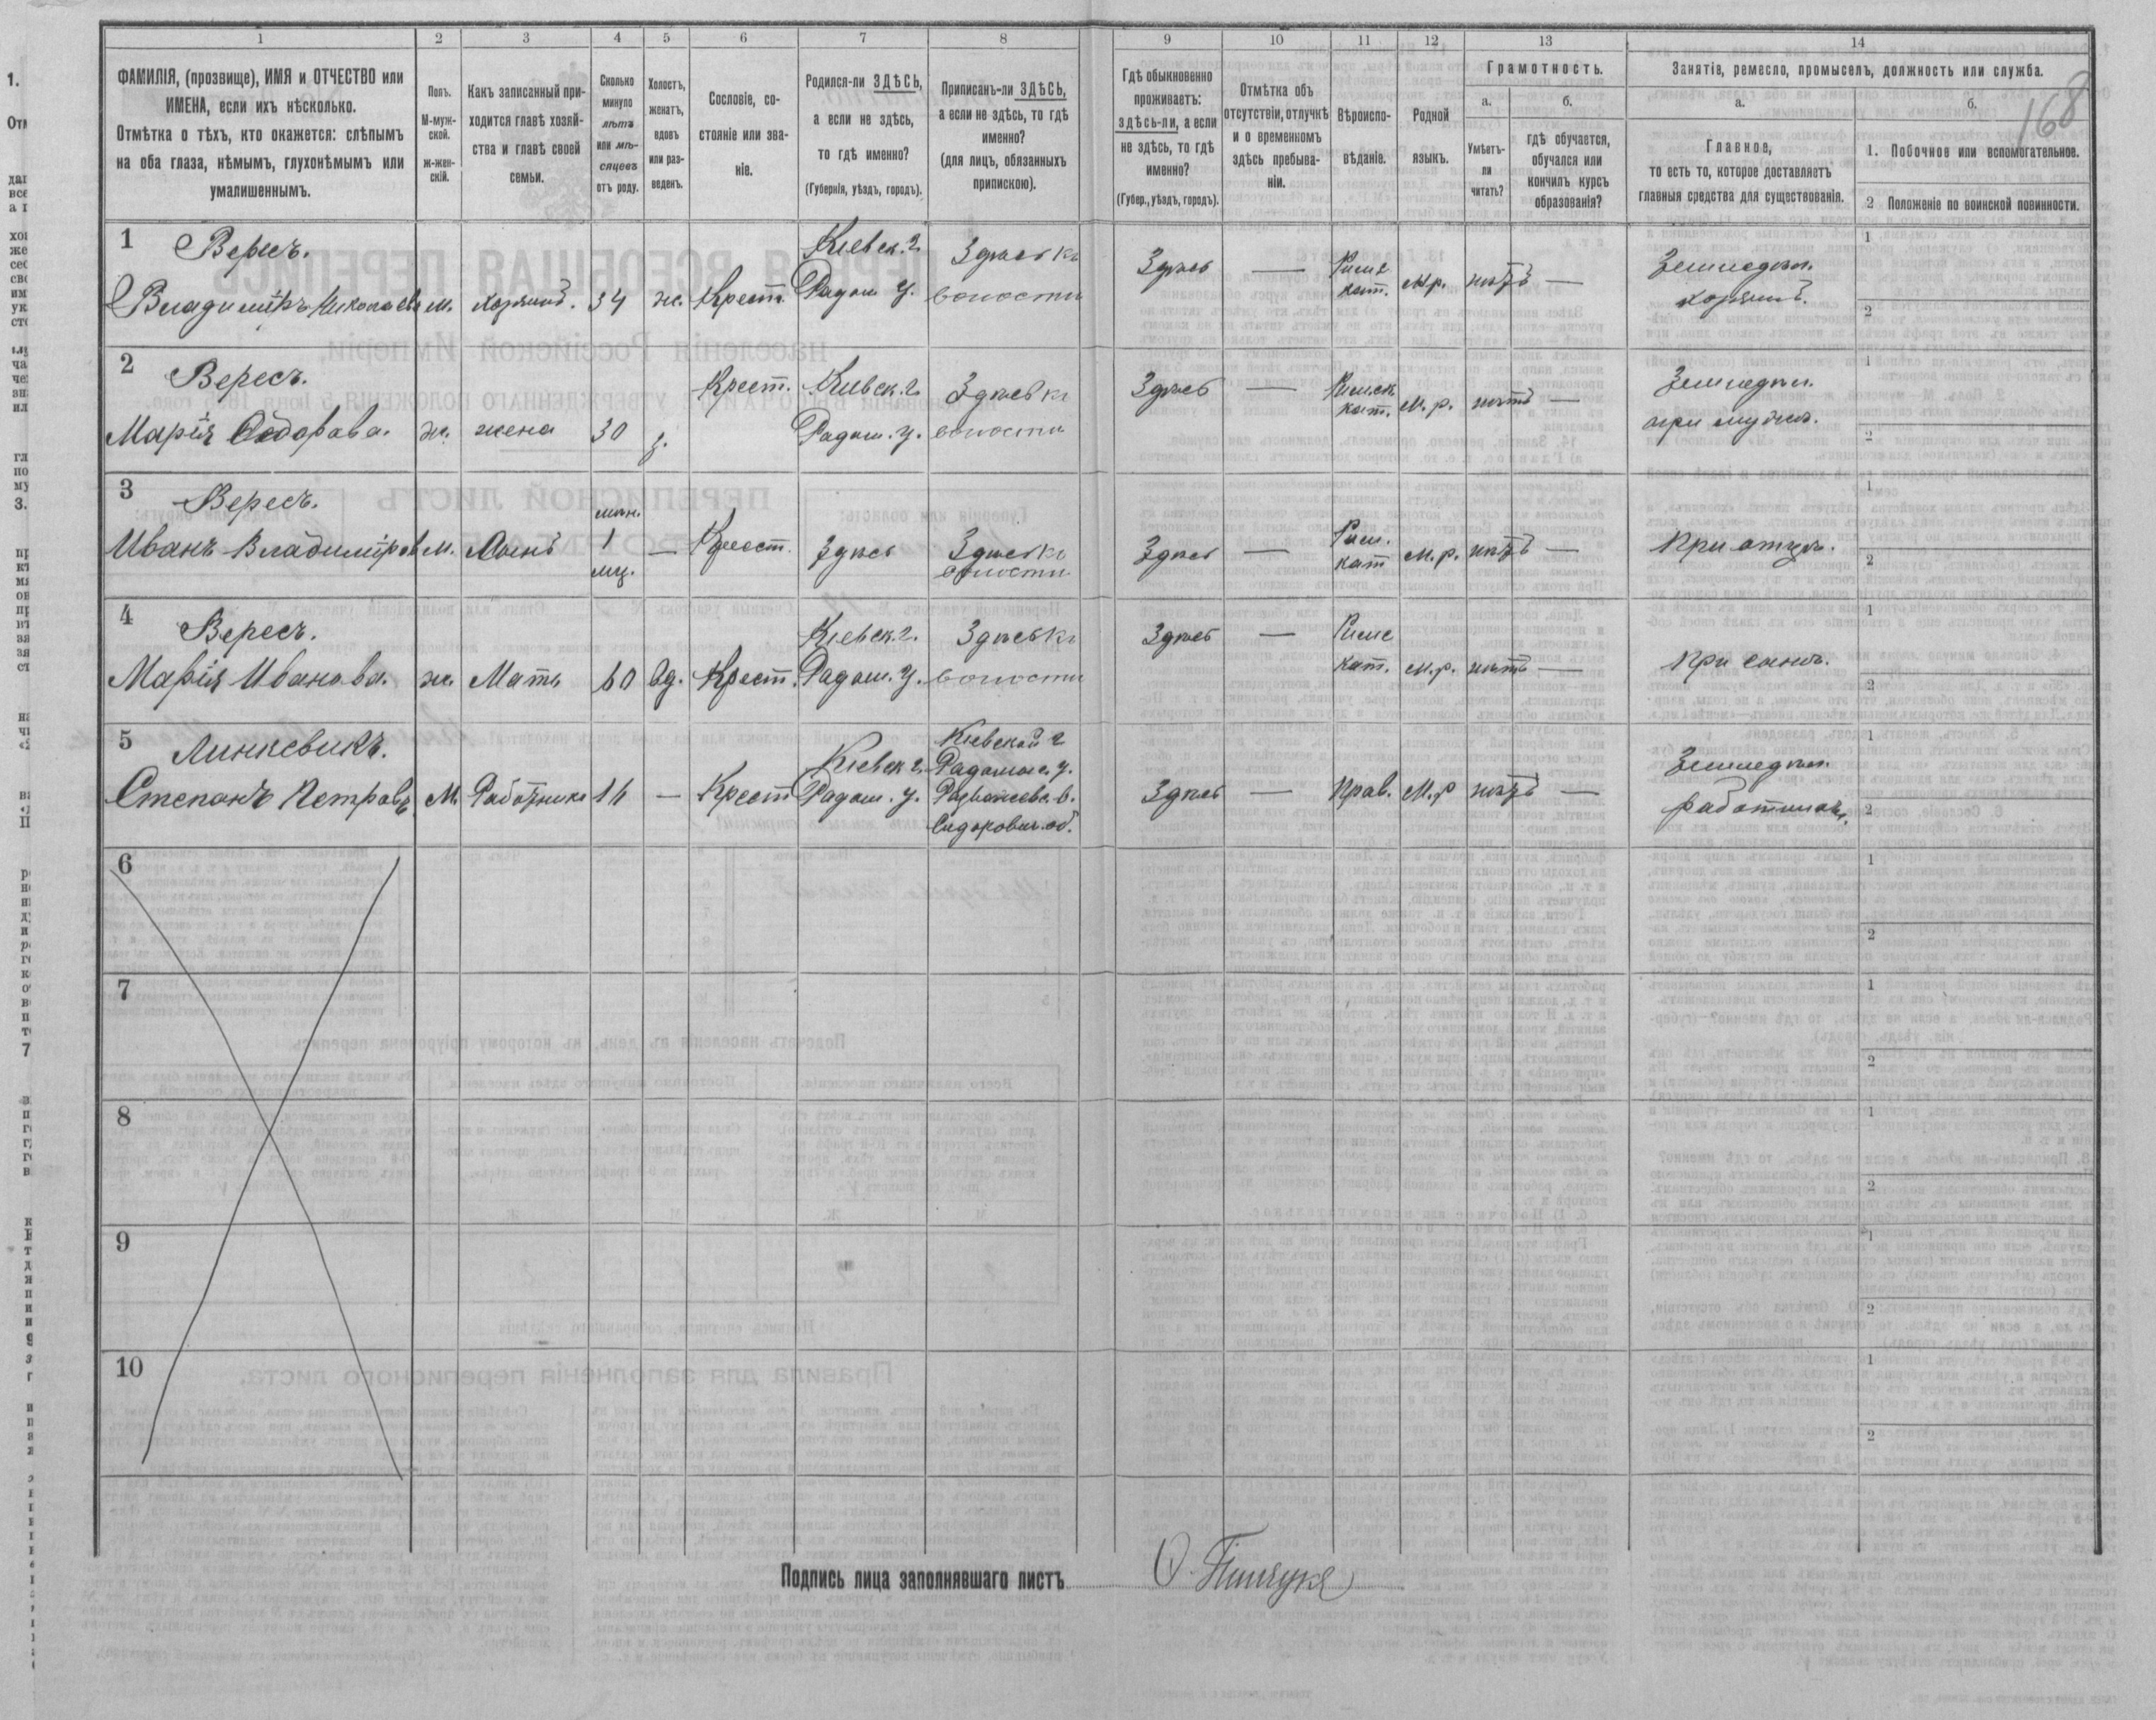 1 2 3 4 5 6 7 8 9 10 11 12 13 14
168
ФАМИЛІЯ, (прозвище), ИМЯ и ОТЧЕСТВО или
ИМЕНА, если ихъ нѣсколько.
Отмѣтка о тѣхъ, кто окажется: слѣпымъ
на оба глаза, нѣмымъ, глухонѣмымъ или
умалишеннымъ.
Полъ.
М-муж-
ской.
ж-жен-
скій.
Какъ записанный при-
ходится главѣ хозяй-
ства и главѣ своей
семьи.
Сколько
минуло
лѣтъ
или мѣ-
сяцевъ
отъ роду.
Холостъ,
женатъ,
вдовъ
или раз-
веденъ.
Сословіе, со-
стояніе или зва-
ніе.
Родился-ли ЗДѢСЬ,
а если не здѣсь,
то гдѣ именно?
(Губернія, уѣздъ, городъ).
Приписанъ-ли ЗДѢСЬ,
а если не здѣсь, то гдѣ
именно?
(для лицъ, обязанныхъ
припискою).
Гдѣ обыкновенно
проживаетъ:
здѣсь-ли, а если
не здѣсь, то гдѣ
именно?
(Губер., уѣздъ, городъ).
Отмѣтка объ
отсутствіи, отлучкѣ
и о временномъ
здѣсь пребыва-
ніи.
Вѣроиспо-
вѣданіе.
Родной
языкъ.
Грамотность.
а.
Умѣетъ-
ли
читать?
б.
гдѣ обучается,
обучался или
кончилъ курсъ
образованія?
Занятіе, ремесло, промыселъ, должность или служба.
а.
Главное,
то есть то, которое доставляетъ
главныя средства для существованія.
б.
1. Побочное или вспомогательное.
2 Положеніе по воинской повинности.
1 Вересъ.
Владиміръ Николаевъ м. хозяинъ. 34 ж. Крест. Кіевск. г. Радом. у. Здѣсь къ волости Здѣсь — Римс кат. м.р. нѣтъ — Земледѣл. хозяинъ. 1 2
2 Вересъ.
Марія Ѳедорова. ж. жена 30 з. Крест. Кіевск. г. Радом. у. Здѣсь къ волости Здѣсь — Римск кат. М. р. нѣтъ — Земледѣл. при мужѣ. 1 2
3 Вересъ.
Иванъ Владиміров м. Сынъ 1 мѣц. — Крест. Здѣсь Здѣсь къ волости Здѣсь — Рим. кат м. р. нѣтъ — При отцѣ. 1 2
4 Вересъ.
Марія Иванова. ж. Мать 60 вд. Крест. Кіевск. г. Радом. у. Здѣсь къ волости Здѣсь — Римс кат. м. р. нѣтъ — При сынѣ. 1 2
5 Линкевичъ.
Степанъ Петровъ М. Работникъ 16 — Крест Кіевск г. Радом. у. Кіевской г Радомыс. у. Сидорович. об. Здѣсь — Прав. М. р нѣтъ — Земледѣл. работникъ. 1 2
6 1 2
7 1 2
8 1 2
9 1 2
10 1 2
Подпись лица заполнявшаго листъ